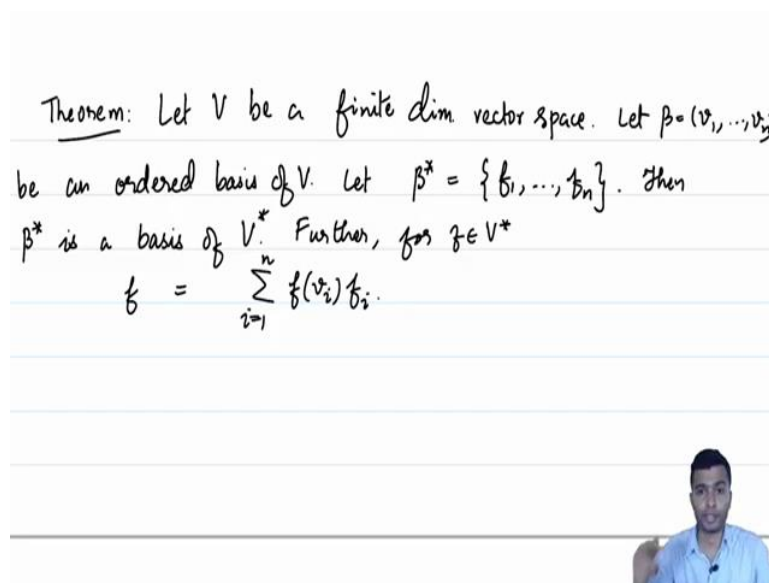 Theorem: Let V be a finite dim vector space. Let β=(v₁,...,vₙ)
be an ordered basis of V. Let β* = {f₁,...,fₙ}. Then
β* is a basis of V*. Further, for f∈V*
f = \sum_{i=1}^{n} f(vᵢ)fᵢ.